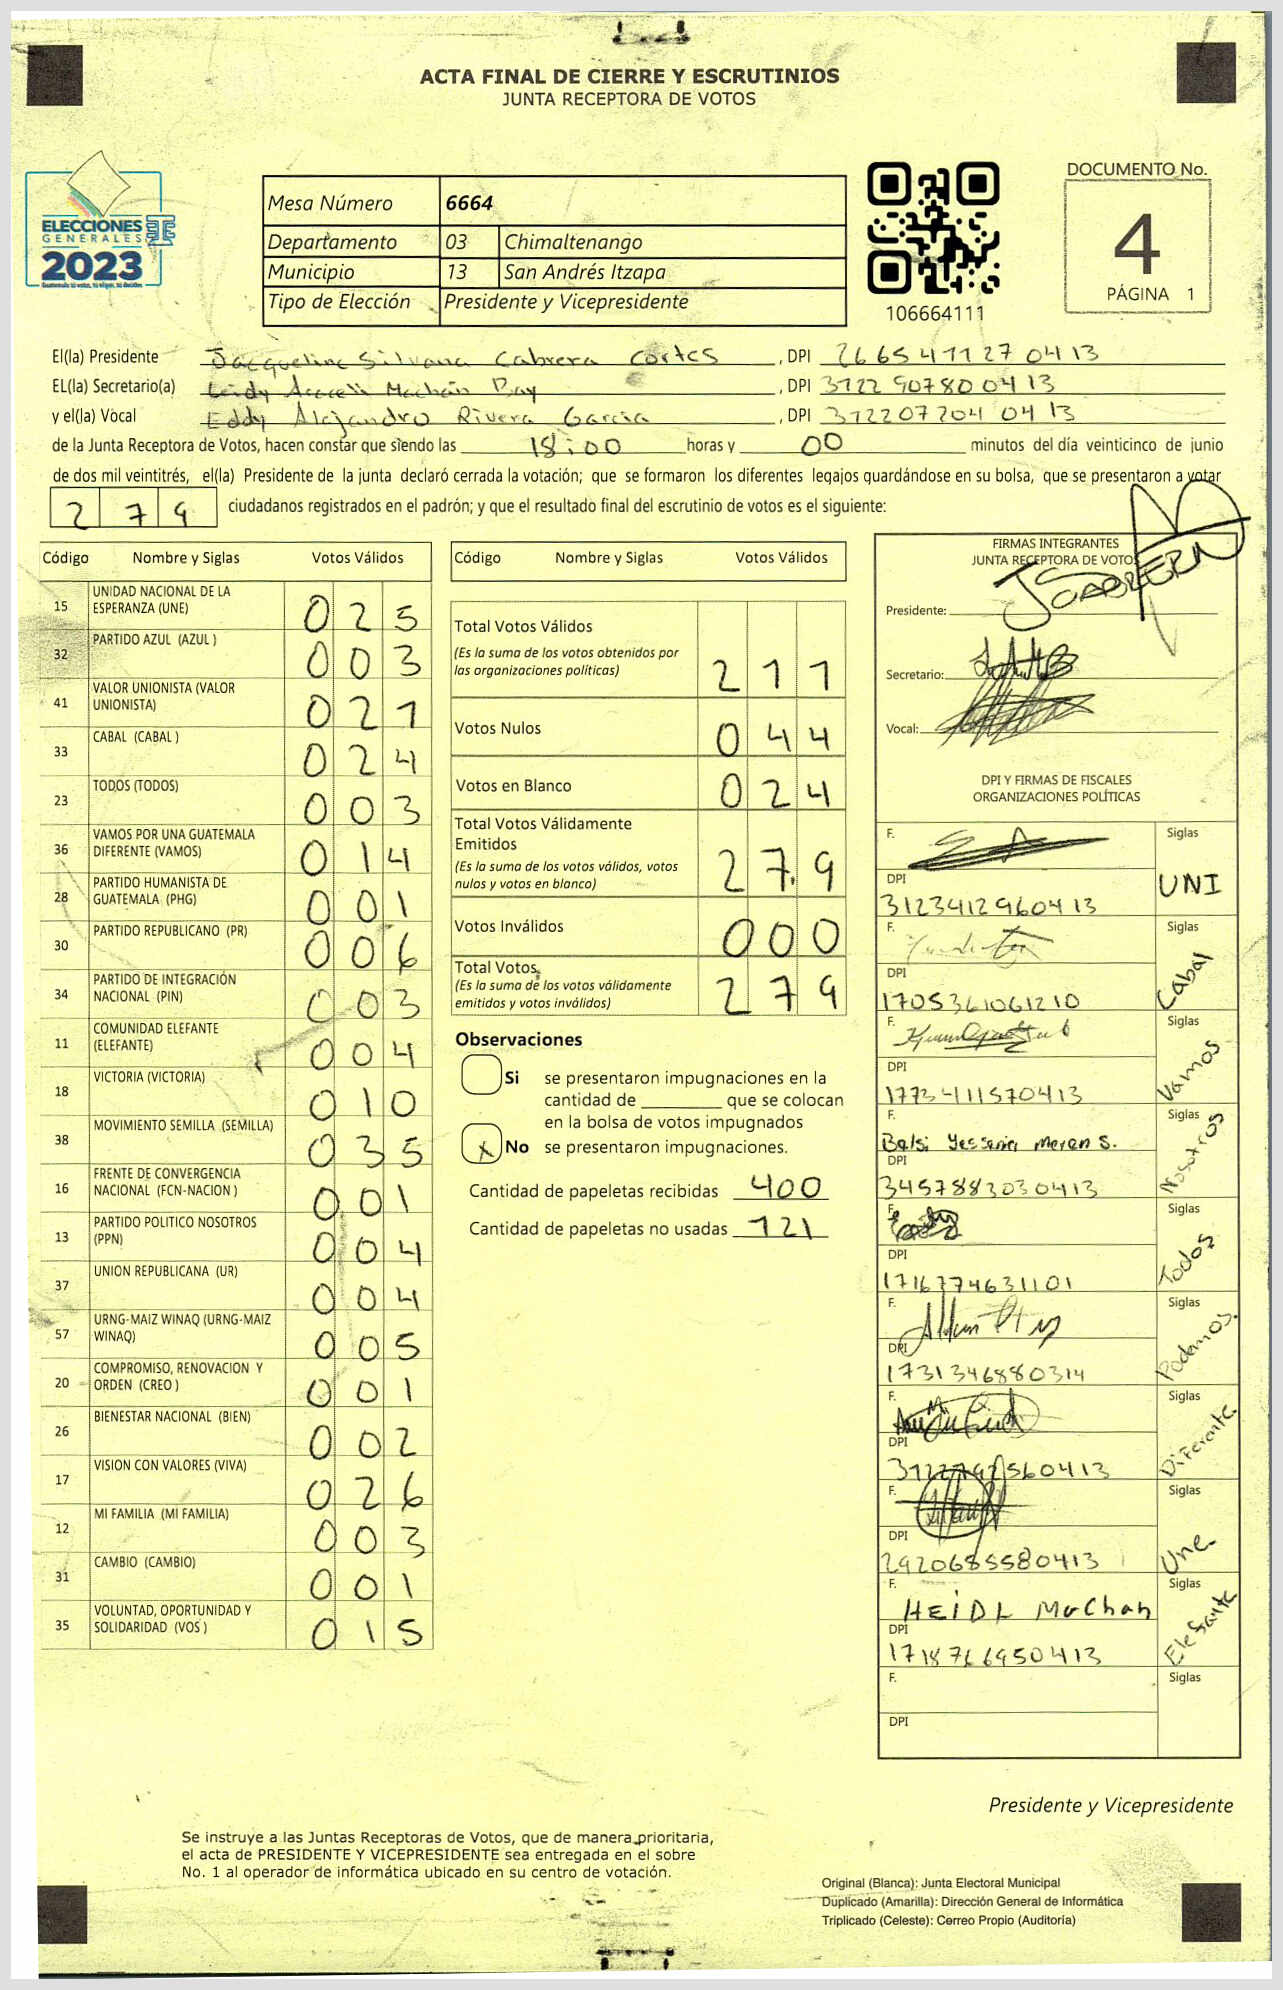 ACTA FINAL DE CIERRE Y ESCRUTINIOS
JUNTA RECEPTORA DE VOTOS
ELECCIONES
GENERALES
2023
Mesa Número 6664
Departamento 03 Chimaltenango
Municipio 13 San Andrés Itzapa
Tipo de Elección Presidente y Vicepresidente
106664111
DOCUMENTO No.
4
PÁGINA 1
El(la) Presidente Jacqueline Silvana Cabrera Cortes, DPI 2665411270413
EL(la) Secretario(a) Leidy Araceli Machán Bay, DPI 3122907800413
y el(la) Vocal Eddy Alejandro Rivera Garcia, DPI 3122072040413
de la Junta Receptora de Votos, hacen constar que siendo las 18:00 horas y 00 minutos del día veinticinco de junio
de dos mil veintitrés, el(la) Presidente de la junta declaró cerrada la votación; que se formaron los diferentes legajos guardándose en su bolsa, que se presentaron a votar
279 ciudadanos registrados en el padrón; y que el resultado final del escrutinio de votos es el siguiente:
Código Nombre y Siglas Votos Válidos
15 UNIDAD NACIONAL DE LA
ESPERANZA (UNE) 025
32 PARTIDO AZUL (AZUL ) 003
41 VALOR UNIONISTA (VALOR
UNIONISTA) 021
33 CABAL (CABAL ) 024
23 TODOS (TODOS) 003
36 VAMOS POR UNA GUATEMALA
DIFERENTE (VAMOS) 014
28 PARTIDO HUMANISTA DE
GUATEMALA (PHG) 001
30 PARTIDO REPUBLICANO (PR) 006
34 PARTIDO DE INTEGRACIÓN
NACIONAL (PIN) 003
11 COMUNIDAD ELEFANTE
(ELEFANTE) 004
18 VICTORIA (VICTORIA) 010
38 MOVIMIENTO SEMILLA (SEMILLA) 035
16 FRENTE DE CONVERGENCIA
NACIONAL (FCN-NACION ) 001
13 PARTIDO POLITICO NOSOTROS
(PPN) 004
37 UNION REPUBLICANA (UR) 004
57 URNG-MAIZ WINAQ (URNG-MAIZ
WINAQ) 005
20 COMPROMISO, RENOVACION Y
ORDEN (CREO ) 001
26 BIENESTAR NACIONAL (BIEN) 002
17 VISION CON VALORES (VIVA) 026
12 MI FAMILIA (MI FAMILIA) 003
31 CAMBIO (CAMBIO) 001
35 VOLUNTAD, OPORTUNIDAD Y
SOLIDARIDAD (VOS ) 015
Código Nombre y Siglas Votos Válidos
Total Votos Válidos
(Es la suma de los votos obtenidos por
las organizaciones políticas) 211
Votos Nulos 044
Votos en Blanco 024
Total Votos Válidamente
Emitidos
(Es la suma de los votos válidos, votos
nulos y votos en blanco) 279
Votos Inválidos 000
Total Votos
(Es la suma de los votos válidamente
emitidos y votos inválidos) 279
Observaciones
Si se presentaron impugnaciones en la
cantidad de ________ que se colocan
en la bolsa de votos impugnados
X No se presentaron impugnaciones.
Cantidad de papeletas recibidas 400
Cantidad de papeletas no usadas 121
FIRMAS INTEGRANTES
JUNTA RECEPTORA DE VOTOS
Presidente:
Secretario:
Vocal:
DPI Y FIRMAS DE FISCALES
ORGANIZACIONES POLÍTICAS
F. Siglas
DPI UNI
3123412960413
F. Siglas
DPI Cabal
1705361061210
F. Siglas
DPI Vamos
1773411570413
F. Siglas
Balsi Yessenia Meren S.
DPI Nosotros
3457883030413
F. Siglas
DPI Todos
1716774631101
F. Siglas
DPI Podemos.
1731346880314
F. Siglas
DPI Diferente
F. Siglas
DPI Une
2920685580413
F. Siglas
HEIDI Machan
DPI Elefante
1718766950413
F. Siglas
DPI
Presidente y Vicepresidente
Se instruye a las Juntas Receptoras de Votos, que de manera prioritaria,
el acta de PRESIDENTE Y VICEPRESIDENTE sea entregada en el sobre
No. 1 al operador de informática ubicado en su centro de votación.
Original (Blanca): Junta Electoral Municipal
Duplicado (Amarilla): Dirección General de Informática
Triplicado (Celeste): Correo Propio (Auditoría)